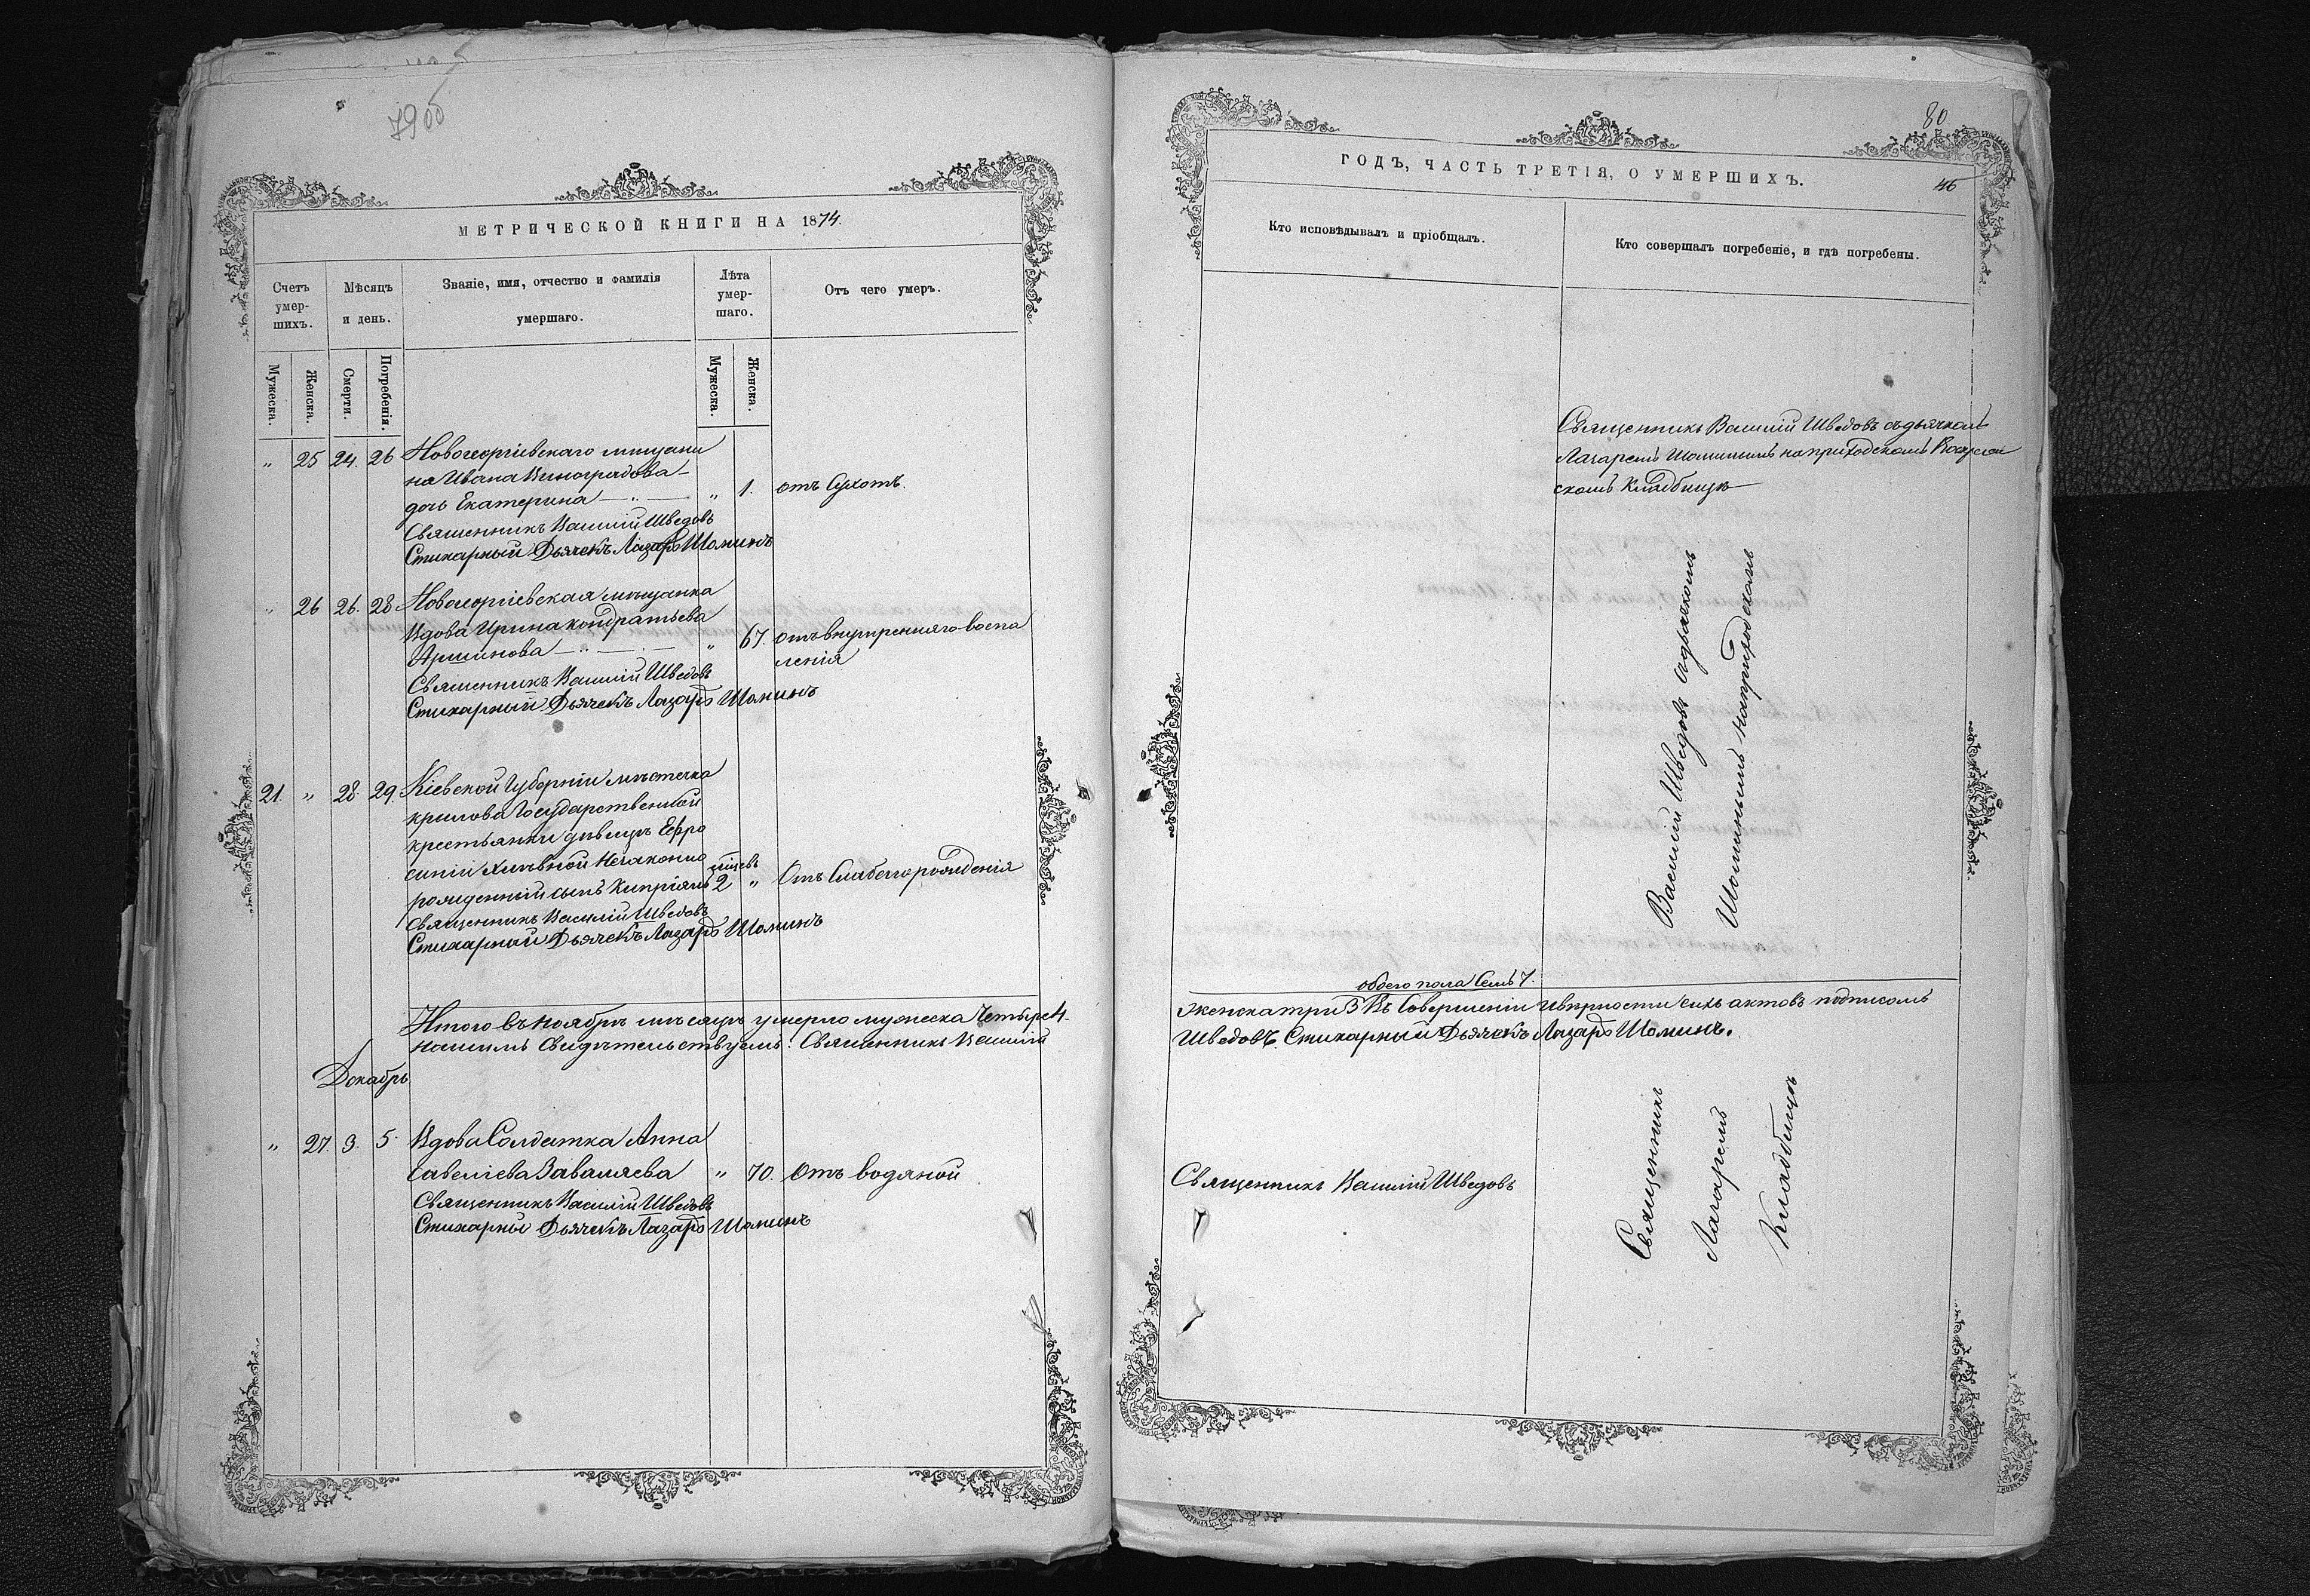 7900
МЕТРИЧЕСКОЙ КНИГИ НА 1874.
Счетъ умер-шихъ.
Мѣсяцъ и день.
Званіе, имя, отчество и фамилія умершаго.
Лѣта умер-шаго.
Отъ чего умеръ.
Мужеска.
Женска.
Смерти.
Погребенія.
Мужеска.
Женска.
„ 25 24. 26 Новогеоргіевскаго мищани
на Ивана Виноградова
дочь Екатерина „ 1. отъ Сухотъ.
Священникъ Василій Шведовъ
Стихарный Дьячекъ Лазарь Шоминъ
„ 26 26. 28 Новогеоргіевская мѣщанка
Вдова Ирина Кондратьева
Аршинова „ 67. отъ внутренняго воспа
ленія
Священникъ Василій Шведовъ
Стихарный Дьячекъ Лазарь Шоминъ
21. „ 28. 29. Кіевской Губерніи мѣстечка
крылова Государственной
крестьянки дѣвицы Ефро
синіи незаконно
рожденный сынъ Кипріянъ 2 „ Отъ Слабаго рожденія
Священникъ Василій Шведовъ
Стихарный Дьячекъ Лазарь Шоминъ
Итого въ ноябрѣ мѣсяцѣ умерло мужеска Четыре 4.
нашимъ Свидѣтельствуемъ: Священникъ Василій
Декабрь
„ 27. 3. 5. Вдова Солдатка Анна
Савеліева Заваляева „ 70. Отъ водяной
Священникъ Василій Шведовъ
Стихарный Дьячекъ Лазарь Шоминъ
80
ГОДЪ, ЧАСТЬ ТРЕТІЯ, О УМЕРШИХЪ.
46
Кто исповѣдывалъ и пріобщалъ.
Кто совершалъ погребеніе, и гдѣ погребены.
Священникъ Василій Шведовъ съ дьячкомъ
Лазаремъ Шоминымъ на приходскомъ
скомъ Кладбищѣ
Василій Шведовъ съ дьячкомъ
Шоминымъ на приходскомъ
обоего пола Семь 7.
женска три 3 Въ Совершеніи и вѣрности сихъ актовъ подписомъ
Шведовъ. Стихарный Дьячекъ Лазарь Шоминъ.
Священникъ Василій Шведовъ
Священникъ
Лазаремъ
Кладбищѣ